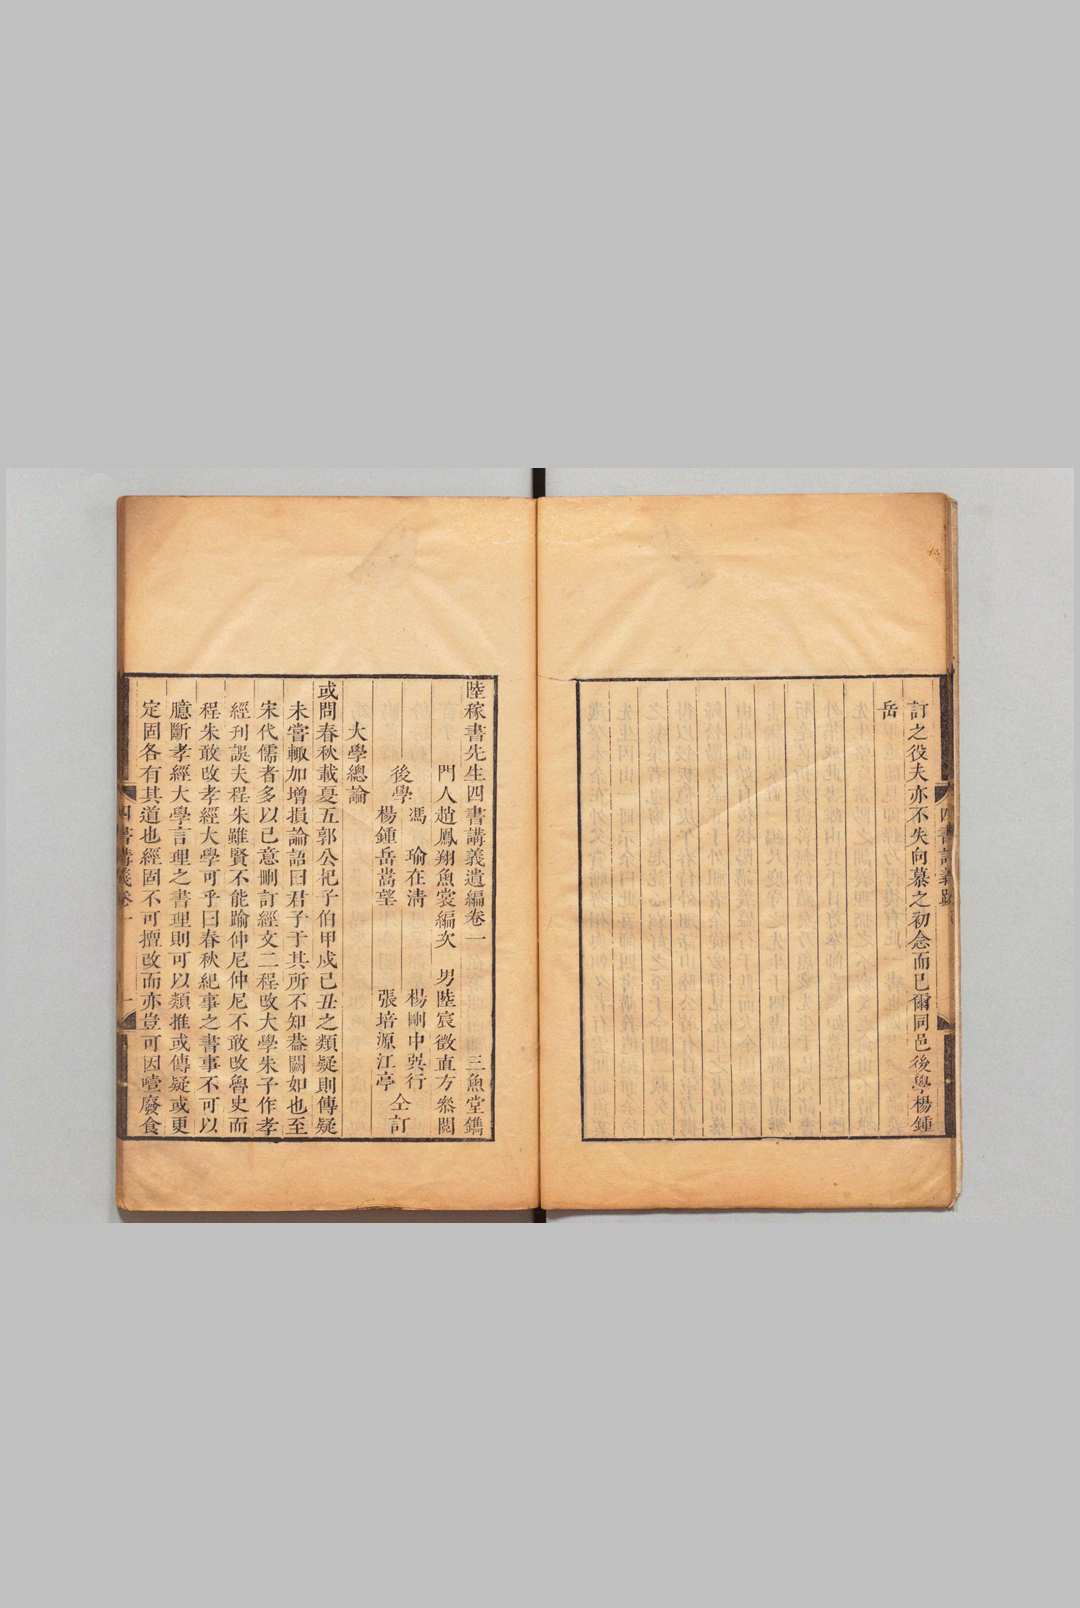 訂之役夫亦不失向慕之初念而已爾同邑後學楊鍾
岳
陸稼書先生四書講義遺編卷一　三魚堂鐫
門人趙鳳翔魚裳編次　男陸宸徵直方叅閱
馮　瑜在淸　楊剛中奕行
後學　仝訂
楊鍾岳嵩望　張培源江亭
大學總論
或問春秋載夏五郭公杞子伯甲戌己丑之類疑則傳疑
未嘗輙加增損論語曰君子于其所不知葢闕如也至
宋代儒者多以己意刪訂經文二程改大學朱子作孝
經刋誤夫程朱雖賢不能踰仲尼仲尼不敢改魯史而
程朱敢改孝經大學可乎曰春秋紀事之書事不可以
臆斷孝經大學言理之書理則可以類推或傳疑或更
定固各有其道也經固不可擅改而亦豈可因噎廢食
四書講義卷一　一